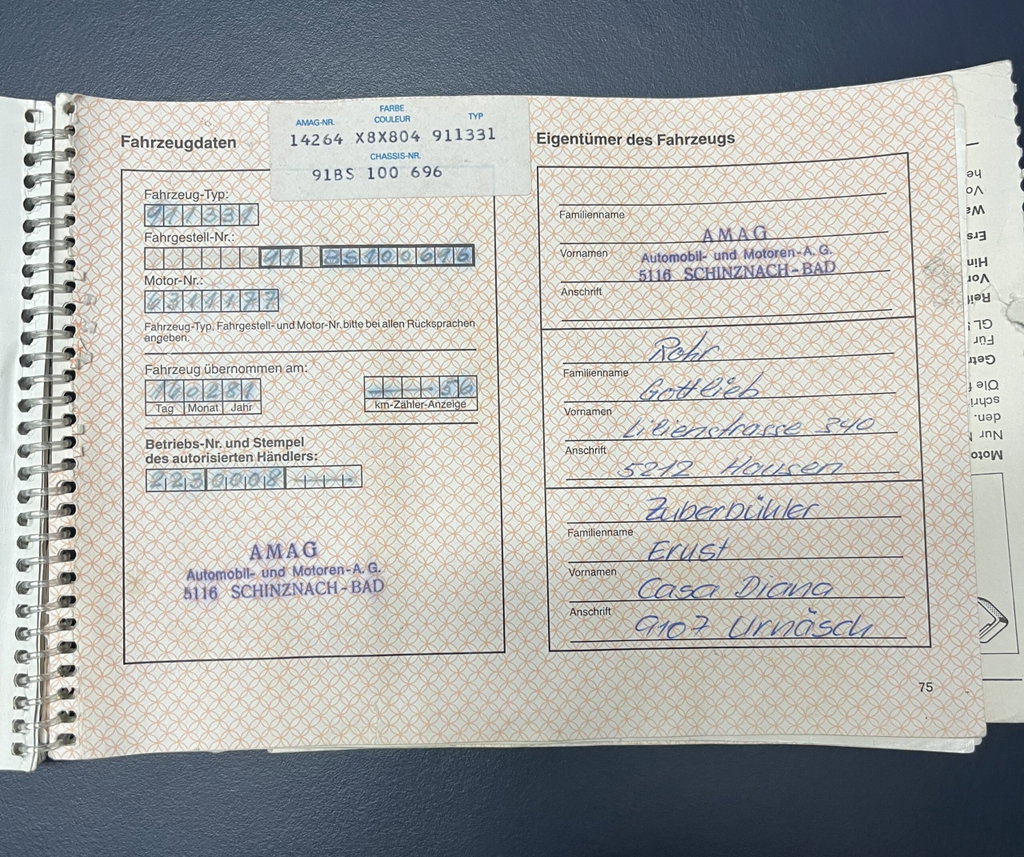 FARBE
AMAG-NR. COULEUR TYP
14264 X8X804 911331
CHASSIS-NR.
91BS 100 696
Fahrzeugdaten
Fahrzeug-Typ:
911331
Fahrgestell-Nr.:
91 BS100696
Motor-Nr.:
6311177
Fahrzeug-Typ, Fahrgestell- und Motor-Nr. bitte bei allen Rücksprachen
angeben.
Fahrzeug übernommen am:
140281 56
Tag Monat Jahr km-Zähler-Anzeige
Betriebs-Nr. und Stempel
des autorisierten Händlers:
2230008
AMAG
Automobil- und Motoren-A.G.
5116 SCHINZNACH-BAD
Eigentümer des Fahrzeugs
Familienname
AMAG
Vornamen
Automobil- und Motoren-A.G.
5116 SCHINZNACH-BAD
Anschrift
Rohr
Familienname
Gottlieb
Vornamen
Lilienstrasse 340
Anschrift
5212 Hausen
Zuberbühler
Familienname
Ernst
Vornamen
Casa Diana
Anschrift
9107 Urnäsch
75